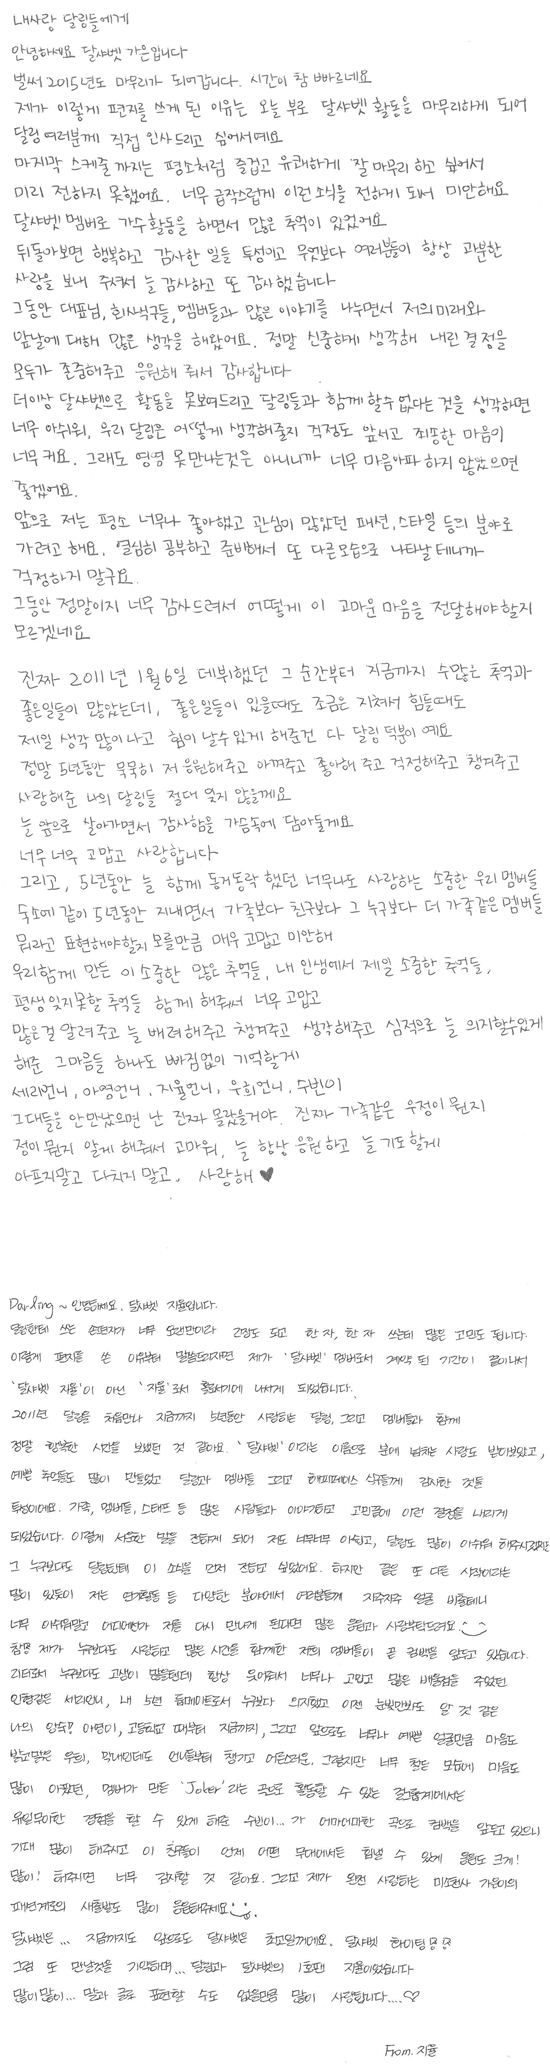 내사랑 달링들에게
안녕하세요 달샤벳 가은입니다
벌써 2015년도 마무리가 되어갑니다. 시간이 참 빠르네요
제가 이렇게 편지를 쓰게 된 이유는 오늘 부로 달샤벳 활동을 마무리하게 되어
달링여러분께 직접 인사드리고 싶어서예요
마지막 스케줄 까지는 평소처럼 즐겁고 유쾌하게 잘 마무리 하고 싶어서
미리 전하지 못했어요. 너무 급작스럽게 이런 소식을 전하게 돼서 미안해요
달샤벳 멤버로 가수활동을 하면서 많은 추억이 있었어요
뒤돌아보면 행복하고 감사한 일들 투성이고 무엇보다 여러분들이 항상 과분한
사랑을 보내 주셔서 늘 감사하고 또 감사했습니다
그동안 대표님, 회사식구들, 멤버들과 많은 이야기를 나누면서 저의 미래와
앞날에 대해 많은 생각을 해왔어요. 정말 신중하게 생각해 내린 결정을
모두가 존중해주고 응원해 줘서 감사합니다
더이상 달샤벳으로 활동을 못보여드리고 달링들과 함께 할수 없다는 것을 생각하면
너무 아쉬워, 우리 달링은 어떻게 생각해줄지 걱정도 앞서고 죄송한 마음이
너무 커요. 그래도 영영 못 만나는것은 아니니까 너무 마음아파 하지 않았으면
좋겠어요.
앞으로 저는 평소 너무나 좋아했고 관심이 많았던 패션, 스타일 등의 분야로
가려고 해요. 열심히 공부하고 준비해서 또 다른모습으로 나타날 테니까
걱정하지 말구요.
그동안 정말이지 너무 감사드려서 어떻게 이 고마운 마음을 전달해야 할지
모르겠네요
진짜 2011년 1월 6일 데뷔했던 그 순간부터 지금까지 수많은 추억과
좋은일들이 많았는데, 좋은일들이 있을때도 조금은 지쳐서 힘들때도
제일 생각 많이나고 힘이 날수 있게 해준건 다 달링 덕분이 예요
정말 5년동안 묵묵히 저 응원해주고 아껴주고 좋아해 주고 걱정해주고 챙겨주고
사랑해준 나의 달링들 절대 잊지 않을께요
늘 앞으로 살아가면서 감사함을 가슴속에 담아둘게요
너무너무 고맙고 사랑합니다
그리고, 5년동안 늘 함께 동거동락 했던 너무나도 사랑하는 소중한 우리 멤버들
숙소에 같이 5년동안 지내면서 가족보다 친구보다 그 누구보다 더 가족같은 멤버들
뭐라고 표현해야할지 모를만큼 매우 고맙고 미안해
우리함께 만든 이 소중한 많은 추억들, 내 인생에서 제일 소중한 추억들,
평생 잊지못할 추억들 함께 해줘서 너무 고맙고
많은걸 알려주고 늘 배려해주고 챙겨주고 생각해주고 심적으로 늘 의지할수있게
해준 그 마음들 하나도 빠짐없이 기억할게
세리언니, 아영언니, 지율언니, 우희언니, 수빈이
그대들을 안만났으면 난 진짜 몰랐을거야. 진짜 가족같은 우정이 뭔지
정이 뭔지 알게 해줘서 고마워, 늘 항상 응원하고 늘 기도할게
아프지말고 다치지 말고, 사랑해 ♥
Darling ~ 안녕하세요. 달샤벳 지율입니다.
달링한테 쓰는 손편지가 너무 오랜만이라 긴장도 되고 한 자, 한 자 쓰는데 많은 고민도 됩니다.
이렇게 편지를 쓴 이유부터 말씀드리자면 제가 '달샤벳' 멤버로서 계약 된 기간이 끝이나서
'달샤벳 지율'이 아닌 '지율'로서 홀로서기에 나서게 되었습니다.
2011년 달링을 처음만나 지금까지 5년동안 사랑하는 달링, 그리고 멤버들과 함께
정말 행복한 시간을 보냈던 것 같아요. '달샤벳'이라는 이름으로 분에 넘치는 사랑도 받아보았고,
예쁜 추억들도 많이 만들었고 달링과 멤버들 그리고 해피페이스 식구들께 감사한 것들
투성이에요. 가족, 멤버들, 스태프 등 많은 사람들과 이야기하고 고민끝에 이런 결정을 내리게
되었습니다. 이렇게 서운한 말을 전하게 되어 저도 너무너무 아쉽고, 달링도 많이 아쉬워 해주시겠지만
그 누구보다도 달링한테 이 소식을 먼저 전하고 싶었어요. 하지만 끝은 또 다른 시작이라는
말이 있듯이 저는 연기활동 등 다양한 분야에서 여러분들께 자주자주 얼굴 비출테니
너무 아쉬워말고 어디에선가 저를 다시 만나게 된다면 많은 응원과 사랑부탁드려요.
참! 제가 누구보다도 사랑하고 많은 시간을 함께한 저희 멤버들이 곧 컴백을 앞두고 있습니다.
리더로서 누구보다도 고생이 많을텐데 항상 웃어줘서 너무나 고맙고 많은 배울점을 주었던
인형같은 세리언니, 내 5년 룸메이트로서 누구보다 의지했고 이젠 눈빛만봐도 알 것 같은
나의 아영이, 고등학교 때부터 지금까지, 그리고 앞으로도 너무나 예쁜 얼굴만큼 마음도
밝고맑은 우희, 막내인데도 언니들부터 챙기고 어른스러운. 그렇지만 너무 찾은 모습에 마음도
많이 아팠던, 멤버가 만든 'Joker'라는 곡으로 활동할 수 있는 걸그룹계에서는
유일무이한 경험을 할 수 있게 해준 수빈이... 가 어마어마한 곡으로 컴백을 앞두고 있으니
기대 많이 해주시고 이 친구들이 언제 어떤 무대에서든 힘낼 수 있게 응원도 크게!
많이! 해주시면 너무 감사할 것 같아요. 그리고 제가 완전 사랑하는 미소천사 가은이의
패션계로의 새출발도 많이 응원해주세요.
달샤벳은... 지금까지도 앞으로도 달샤벳은 최고일꺼에요. 달샤벳 화이팅!!
그럼 또 만날것을 기약하며... 달링과 달샤벳의 1호팬 지율이었습니다
많이많이... 말과 글로 표현할 수도 없을만큼 많이 사랑합니다....♡
From. 지율